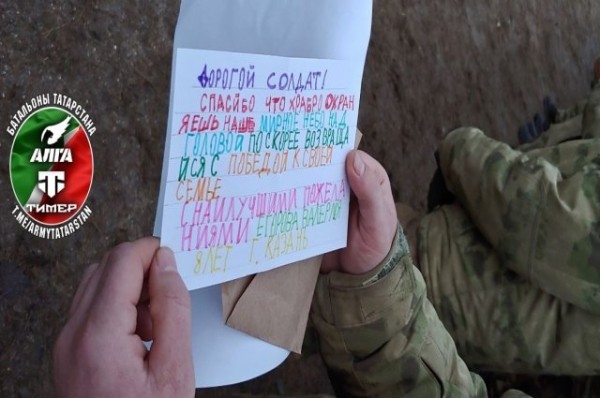 БАТАЛЬОНЫ ТАТАРСТАНА
АЛГА
ТИМЕР
T.ME/ARMYTATARSTAN
ДОРОГОЙ СОЛДАТ!
СПАСИБО ЧТО ХРАБРО ОХРАН
ЯЕШЬ НАШЕ МИРНОЕ НЕБО НАД
ГОЛОВОЙ ПОСКОРЕЕ ВОЗВРАЩА
ЙСЯ С ПОБЕДОЙ К СВОЕЙ
СЕМЬЕ
С НАИЛУЧШИМИ ПОЖЕЛА
НИЯМИ ЕГОРОВА ВАЛЕРИЯ
8 ЛЕТ Г. КАЗАНЬ